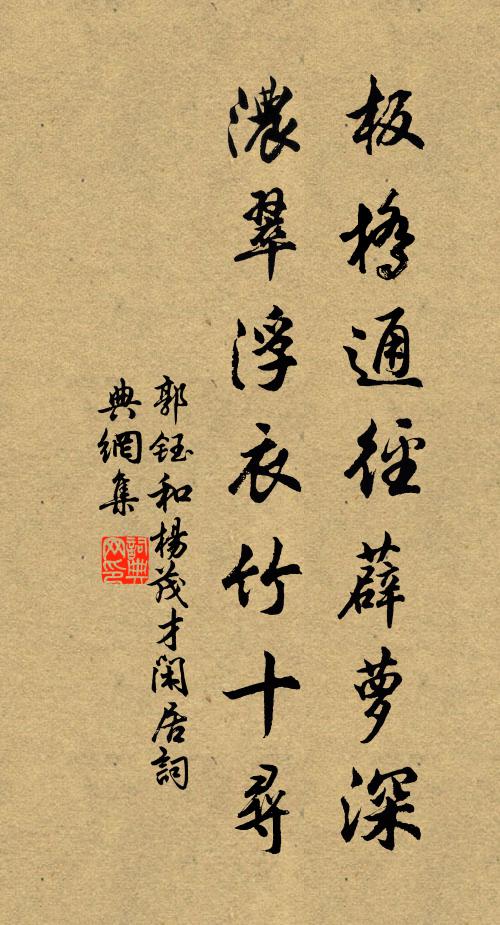 板橋通徑薜萝深
濃翠浮衣竹十尋
郭鈺和楊茂才閑居詞
典網集
詞典
网印